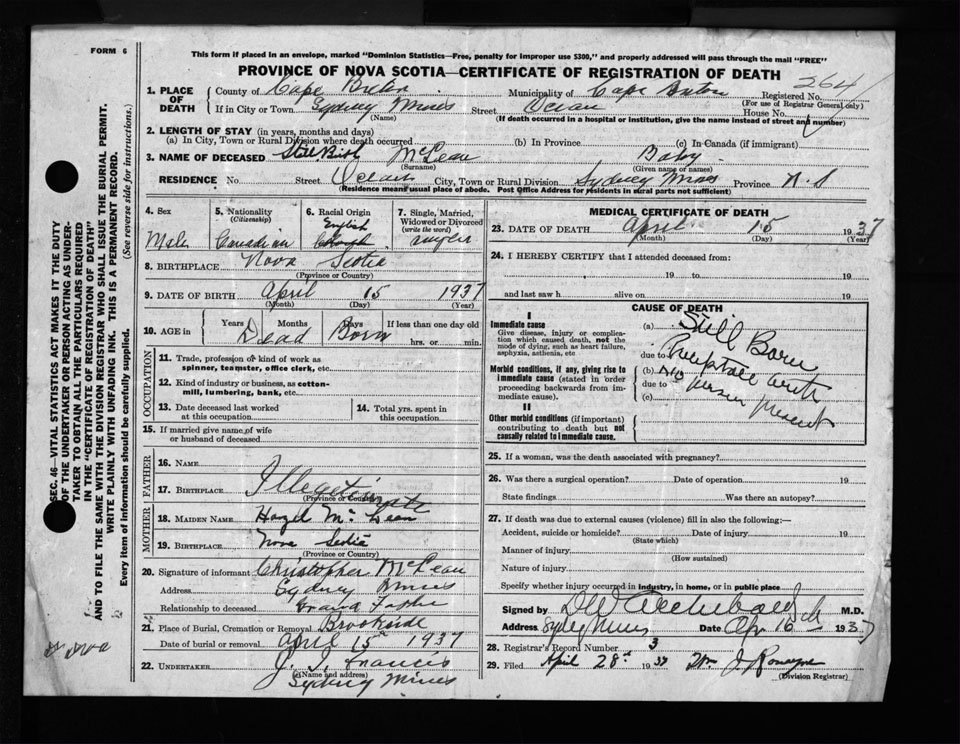 FORM 6
This form if placed in an envelope, marked "Dominion Statistics—Free, penalty for improper use $300," and properly addressed will pass through the mail "FREE"
PROVINCE OF NOVA SCOTIA—CERTIFICATE OF REGISTRATION OF DEATH
264
1. PLACE OF DEATH
County of Cape Breton Municipality of Cape Breton Registered No.
(For use of Registrar General only)
If in City or Town Sydney Mines Street Ocean House No.
(Name) (If death occurred in a hospital or institution, give the name instead of street and number)
2. LENGTH OF STAY (in years, months and days)
(a) In City, Town or Rural Division where death occurred (b) In Province (c) In Canada (if immigrant)
3. NAME OF DECEASED Still Birth McLean Baby
(Surname) (Given name or names)
RESIDENCE No. Street Ocean City, Town or Rural Division Sydney Mines Province N.S
(Residence means usual place of abode. Post Office Address for residents in rural parts not sufficient)
4. Sex Male
5. Nationality (Citizenship) Canadian
6. Racial Origin English
7. Single, Married, Widowed or Divorced (write the word) single
8. BIRTHPLACE Nova Scotia
(Province or Country)
9. DATE OF BIRTH April 15 1937
(Month) (Day) (Year)
10. AGE in Years Months Days If less than one day old
Dead Born hrs. or min.
OCCUPATION
11. Trade, profession or kind of work as spinner, teamster, office clerk, etc.
12. Kind of industry or business, as cotton-mill, lumbering, bank, etc.
13. Date deceased last worked at this occupation
14. Total yrs. spent in this occupation
15. If married give name of wife or husband of deceased
FATHER
16. NAME
17. BIRTHPLACE Illegetimate
(Province or Country)
MOTHER
18. MAIDEN NAME Hazel Mc Lean
19. BIRTHPLACE Nova Scotia
(Province or Country)
20. Signature of informant Christopher McLean
Address Sydney Mines
Relationship to deceased Grand Father
21. Place of Burial, Cremation or Removal Brookside
Date of burial or removal April 15 1937
22. UNDERTAKER J. S. Francis
(Name and address)
Sydney Mines
MEDICAL CERTIFICATE OF DEATH
23. DATE OF DEATH April 15 1937
(Month) (Day) (Year)
24. I HEREBY CERTIFY that I attended deceased from:
, 19 to 19
and last saw h alive on 19
CAUSE OF DEATH
I
Immediate cause
Give disease, injury or complication which caused death, not the mode of dying, such as heart failure, asphyxia, asthenia, etc
Morbid conditions, if any, giving rise to immediate cause (stated in order proceeding backwards from immediate cause).
II
Other morbid conditions (if important) contributing to death but not causally related to immediate cause.
(a) Still Born
due to
(b) No nurse present
due to
(c)
25. If a woman, was the death associated with pregnancy?
26. Was there a surgical operation? Date of operation 19
State findings Was there an autopsy?
27. If death was due to external causes (violence) fill in also the following:—
Accident, suicide or homicide? Date of injury 19
(State which)
Manner of injury
(How sustained)
Nature of injury
Specify whether injury occurred in industry, in home, or in public place
Signed by DW Archibald M.D.
Address Sydney Mines Date Apr 16 1937
28. Registrar's Record Number 3
29. Filed April 28th 1937 Wm J. Romayne
(Division Registrar)
SEC. 46—VITAL STATISTICS ACT MAKES IT THE DUTY
OF THE UNDERTAKER OR PERSON ACTING AS UNDER-
TAKER TO OBTAIN ALL THE PARTICULARS REQUIRED
IN THE "CERTIFICATE OF REGISTRATION OF DEATH"
AND TO FILE THE SAME WITH THE DIVISION REGISTRAR WHO SHALL ISSUE THE BURIAL PERMIT.
WRITE PLAINLY WITH UNFADING INK. THIS IS A PERMANENT RECORD.
Every item of information should be carefully supplied. (See reverse side for instructions.)